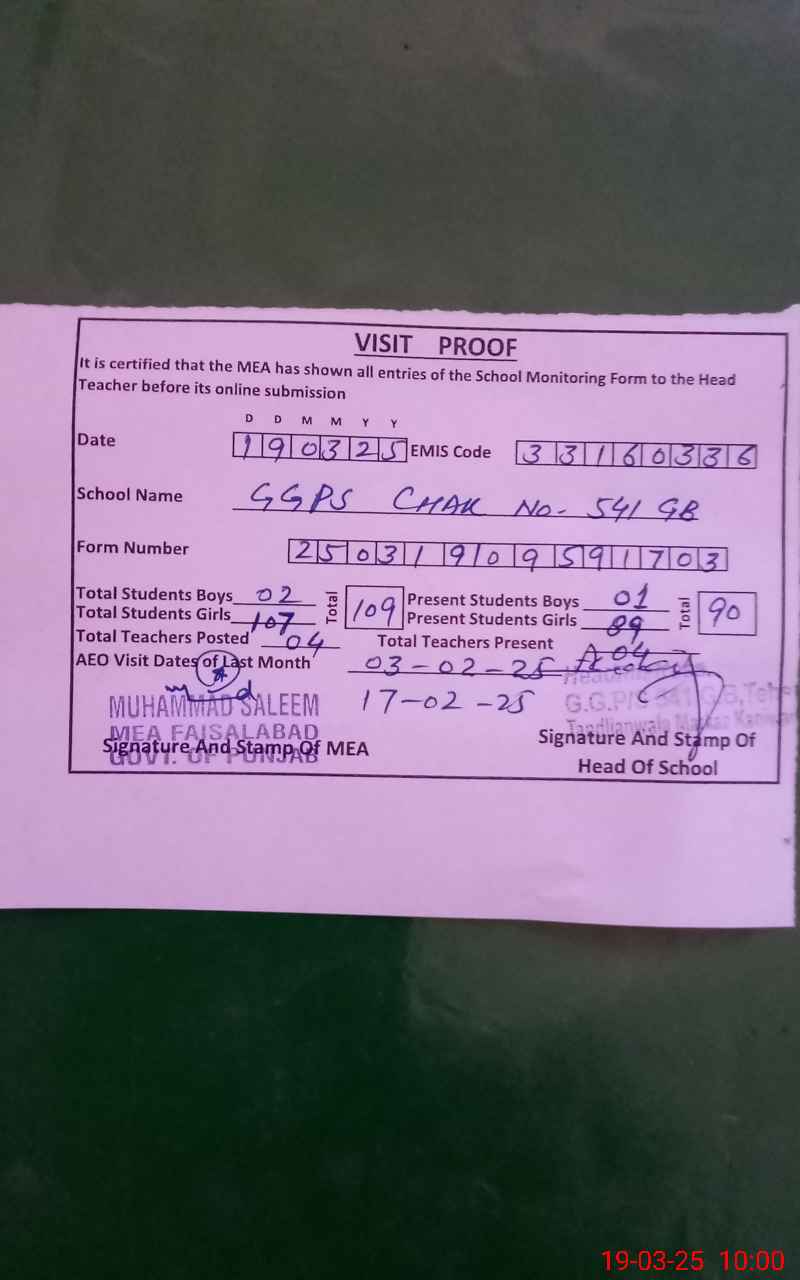 VISIT PROOF
It is certified that the MEA has shown all entries of the School Monitoring Form to the Head
Teacher before its online submission
D D M M Y Y
Date 190325 EMIS Code 33160336
School Name GGPS CHAK No- 541 GB
Form Number 25031909591703
Total Students Boys 02 Total 109 Present Students Boys 01 Total 90
Total Students Girls 107 Present Students Girls 89
Total Teachers Posted 04 Total Teachers Present 04
AEO Visit Dates of Last Month 03-02-25
17-02-25
MUHAMMAD SALEEM
MEA FAISALABAD
GOVT. OF PUNJAB
Signature And Stamp Of MEA
G.G.P/S 541 G.B, Teh
Tandlianwala Markaz
Signature And Stamp Of
Head Of School
19-03-25 10:00